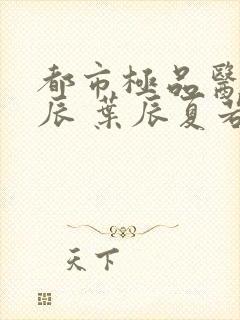 都市極品醫
辰 葉辰夏若
天下